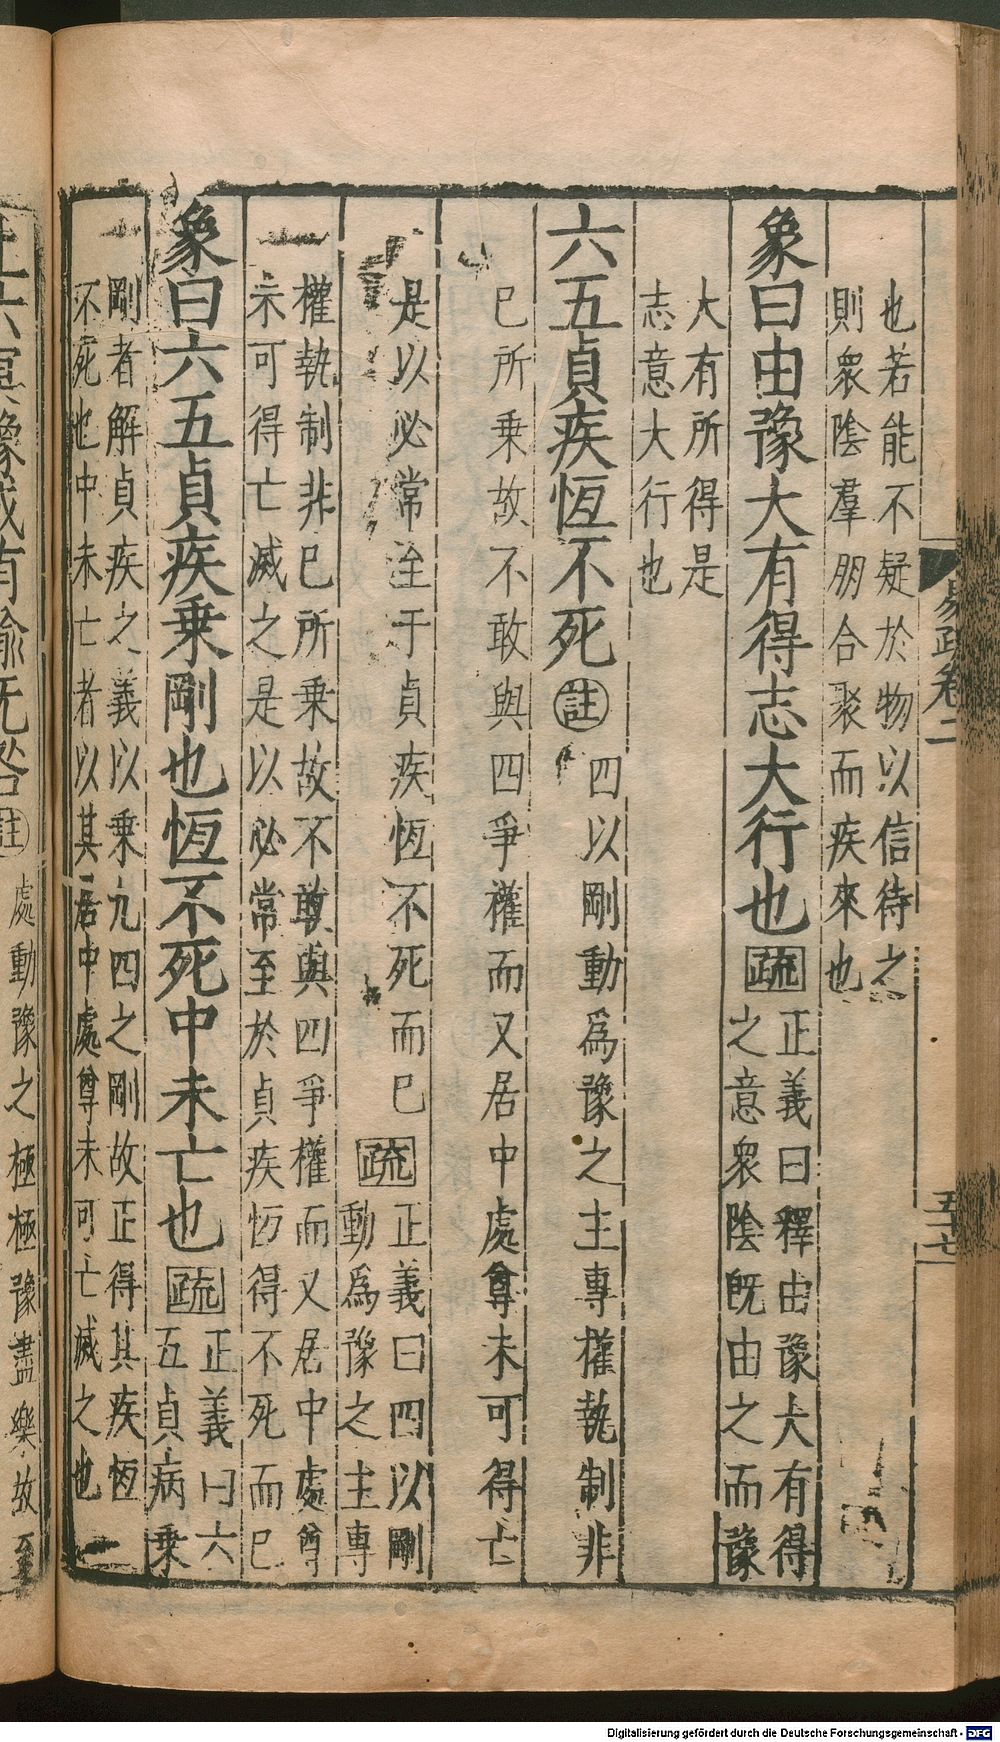 易疏卷二
五十七
也若能不疑於物以信待之
則衆陰羣朋合聚而疾來也
象曰由豫大有得志大行也疏
正義曰釋由豫大有得
之意衆陰旣由之而豫
大有所得是
志意大行也
六五貞疾恆不死註
四以剛動爲豫之主專權執制非
已所乗故不敢與四爭權而又居中處尊未可得亡
是以必常至于貞疾恆不死而已疏
正義曰四以剛
動爲豫之主專
權執制非已所乗故不敢與四爭權而又居中處尊
未可得亡滅之是以必常至於貞疾恆得不死而已
象曰六五貞疾乗剛也恆不死中未亡也疏
正義曰六
五貞病乗
剛者解貞疾之義以乗九四之剛故正得其疾恆
不死也中未亡者以其居中處尊未可亡滅之也
上六冥豫成有渝无咎註
處動豫之極極豫盡樂故至
Digitalisierung gefördert durch die Deutsche Forschungsgemeinschaft - DFG